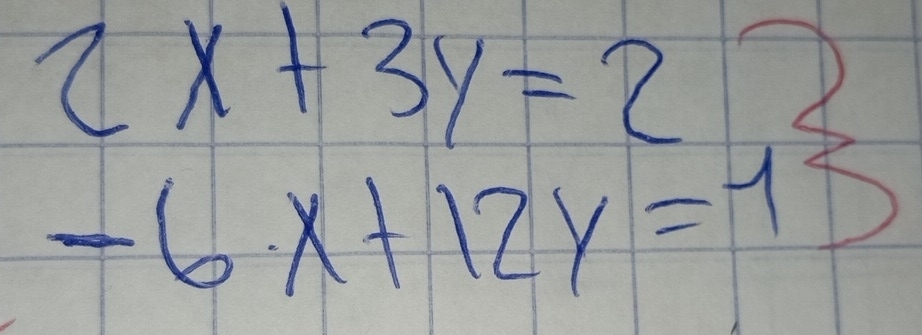 2x+3y=2
-6·x+12y=1